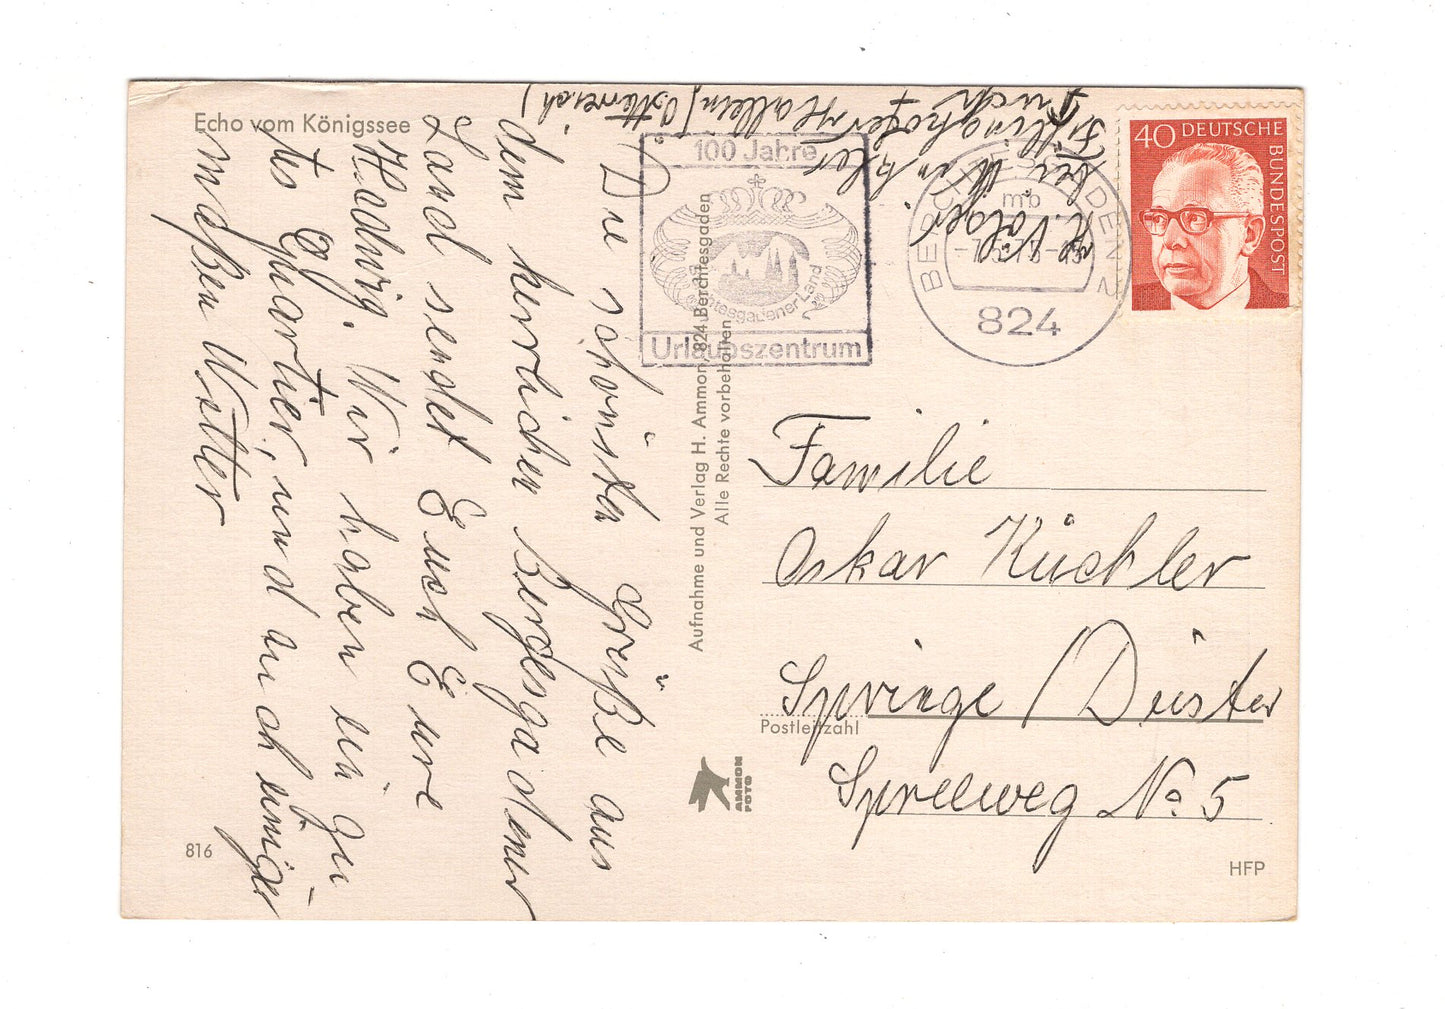 Echo vom Königssee
Die schönsten Grüße aus
dem herlichen Bergesgadener
Land sendet Euch Eure
Hedwig. Wir haben ein gu
tes Quartier, und auch einiger
maßen Wetter
816
Aufnahme und Verlag H. Ammon, 824 Berchtesgaden
Alle Rechte vorbehalten
AMMON
FOTO
100 Jahre
Berchtesgadener Land
Urlaubszentrum
BERCHTESGADEN
mb
824
40 DEUTSCHE
BUNDESPOST
H. Völger
bei Winkler
Hallein (Österreich)
Familie
Oskar Küchler
Springe / Deister
Postleitzahl
Spreeweg No 5
HFP